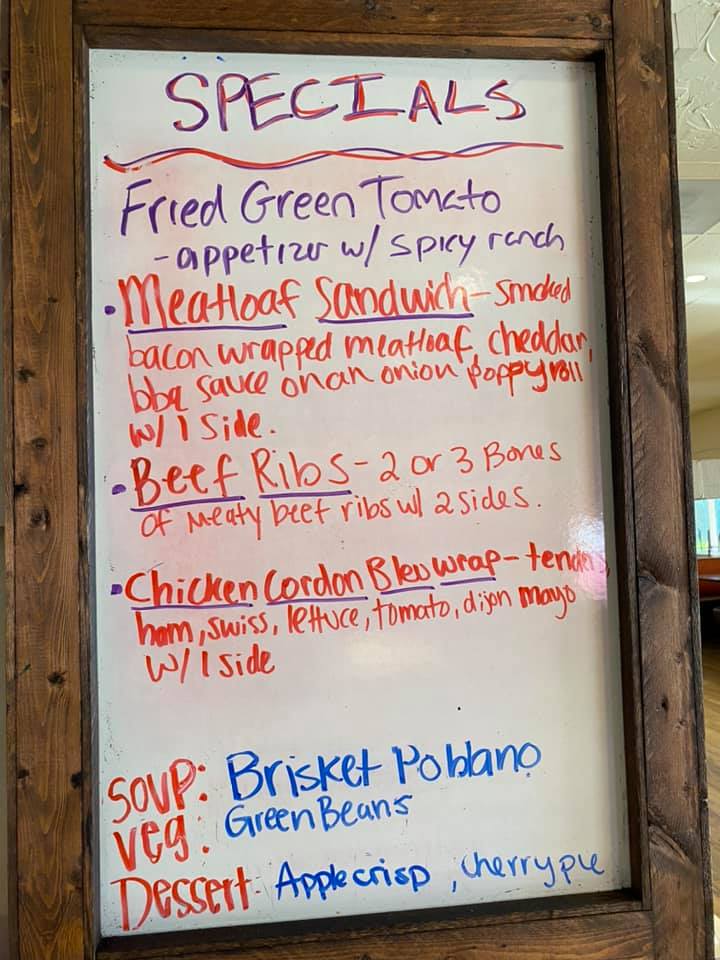 SPECIALS
Fried Green Tomato
- appetizer w/ spicy ranch
• Meatloaf Sandwich - smoked
bacon wrapped meatloaf, cheddar,
bbq sauce on an onion poppy roll
w/ 1 side.
• Beef Ribs - 2 or 3 Bones
of meaty beef ribs w/ 2 sides.
• Chicken Cordon Bleu wrap - tenders,
ham, swiss, lettuce, tomato, dijon mayo
w/ 1 side
Soup: Brisket Poblano
Veg: Green Beans
Dessert - Apple crisp, cherry pie